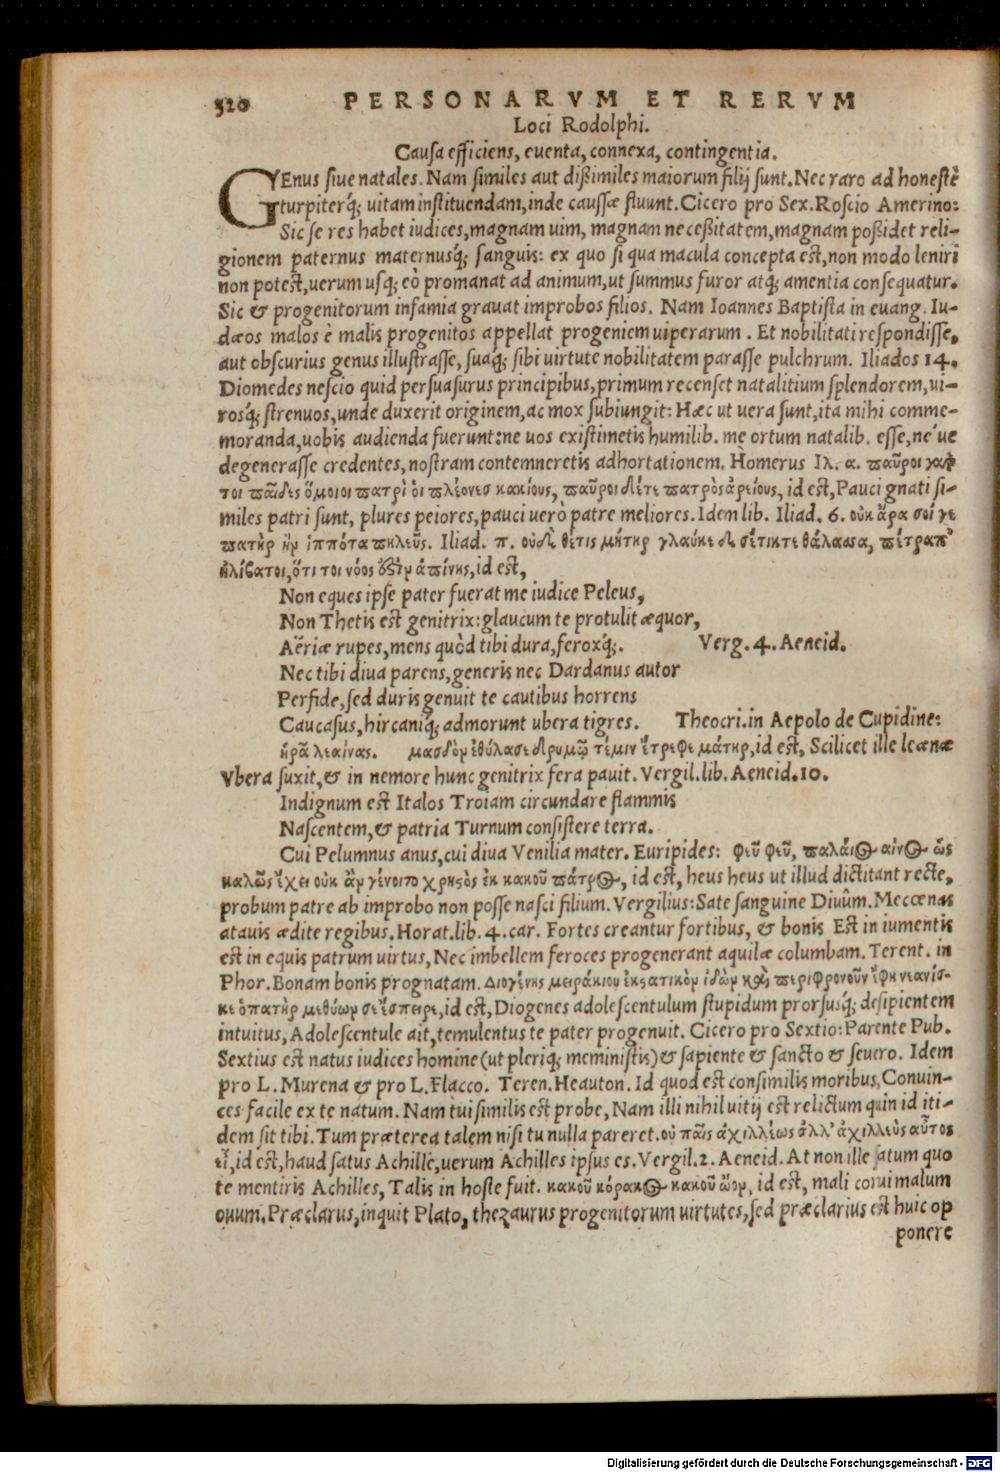 520 PERSONARVM ET RERVM
Loci Rodolphi.
Causa efficiens, euenta, connexa, contingentia.
GEnus siue natales. Nam similes aut dißimiles maiorum filij sunt. Nec raro ad honestè
turpiterq́; uitam instituendam, inde caussæ fluunt. Cicero pro Sex. Roscio Amerino:
Sic se res habet iudices, magnam uim, magnam neceßitatem, magnam poßidet reli-
gionem paternus maternusq́; sanguis: ex quo si qua macula concepta est, non modo leniri
non potest, uerum usq; eò promanat ad animum, ut summus furor atq; amentia consequatur.
Sic & progenitorum infamia grauat improbos filios. Nam Ioannes Baptista in euang. Iu-
dæos malos è malis progenitos appellat progeniem uiperarum. Et nobilitati respondisse,
aut obscurius genus illustrasse, suaq́; sibi uirtute nobilitatem parasse pulchrum. Iliados 14.
Diomedes nescio quid persuasurus principibus, primum recenset natalitium splendorem, ui-
rosq́; strenuos, unde duxerit originem, ac mox subiungit: Hæc ut uera sunt, ita mihi comme-
moranda, uobis audienda fuerunt: ne uos existimetis humilib. me ortum natalib. esse, ne'ue
degenerasse credentes, nostram contemneretis adhortationem. Homerus Ιλ. α. παῦροι γαρ
τοι παῖδες ὅμοιοι πατρὶ οἱ πλέονες κακίους, παῦροι δέτε πατρὸς ἀρείους, id est, Pauci gnati si-
miles patri sunt, plures peiores, pauci uerò patre meliores. Idem lib. Iliad. 6. οὐκ ἄρα σοί γε
πατὴρ ἦν ἱππότα πηλεῦς. Iliad. π. οὐδὲ θέτις μήτηρ γλαύκη δέ σέ τικτε θάλασσα, πέτραι τ'
ἠλίβατοι, ὅτι τοι νόος ἐστὶν ἀπίνης, id est,
Non eques ipse pater fuerat me iudice Peleus,
Non Thetis est genitrix: glaucum te protulit æquor,
Aëriæ rupes, mens quòd tibi dura, feroxq́;. Verg. 4. Aeneid.
Nec tibi diua parens, generis nec Dardanus autor
Perfide, sed duris genuit te cautibus horrens
Caucasus, hircaniq́; admorunt ubera tigres. Theocri. in Aepolo de Cupidine:
ἠρᾶ λεαίνας. μασδὸν ἐθύλασε δρυμῷ τέ μιν ἔτρεφε μάτηρ, id est, Scilicet ille leænæ
Vbera suxit, & in nemore hunc genitrix fera pauit. Vergil. lib. Aeneid. 10.
Indignum est Italos Troiam circundare flammis
Nascentem, & patria Turnum consistere terra.
Cui Pelumnus anus, cui diua Venilia mater. Euripides: φεῦ φεῦ, παλαιὸς αἶνος ὡς
καλῶς ἔχει οὐκ ἂν γένοιτο χρησὸς ἐκ κακοῦ πάτρος, id est, heus heus ut illud dictitant recte,
probum patre ab improbo non posse nasci filium. Vergilius: Sate sanguine Diuûm. Mecœnas
atauis ædite regibus. Horat. lib. 4. car. Fortes creantur fortibus, & bonis Est in iumentis
est in equis patrum uirtus, Nec imbellem feroces progenerant aquilæ columbam. Terent. in
Phor. Bonam bonis prognatam. Διογένης μειράκιον ἐκστατικὸν ἰδὼν καὶ περιφρονοῦν ἔφη νεανίσ-
κε ὁ πατὴρ μεθύων σε ἔσπειρε, id est, Diogenes adolescentulum stupidum prorsusq́; desipientem
intuitus, Adolescentule ait, temulentus te pater progenuit. Cicero pro Sextio: Parente Pub.
Sextius est natus iudices homine (ut pleriq; meministis) & sapiente & sancto & seuero. Idem
pro L. Murena & pro L. Flacco. Teren. Heauton. Id quod est consimilis moribus, Conuin-
ces facile ex te natum. Nam tui similis est probe, Nam illi nihil uitij est relictum quin id iti-
dem sit tibi. Tum præterea talem nisi tu nulla pareret. οὐ παῖς ἀχιλλέως ἀλλ' ἀχιλλεὺς αὖτος
εἶ, id est, haud satus Achille, uerum Achilles ipsus es. Vergil. 2. Aeneid. At non ille satum quo
te mentiris Achilles, Talis in hoste fuit. κακοῦ κόρακος κακοῦ ὦον, id est, mali corui malum
ouum. Præclarus, inquit Plato, thezaurus progenitorum uirtutes, sed præclarius est huic op
ponere
Digitalisierung gefördert durch die Deutsche Forschungsgemeinschaft - DFG